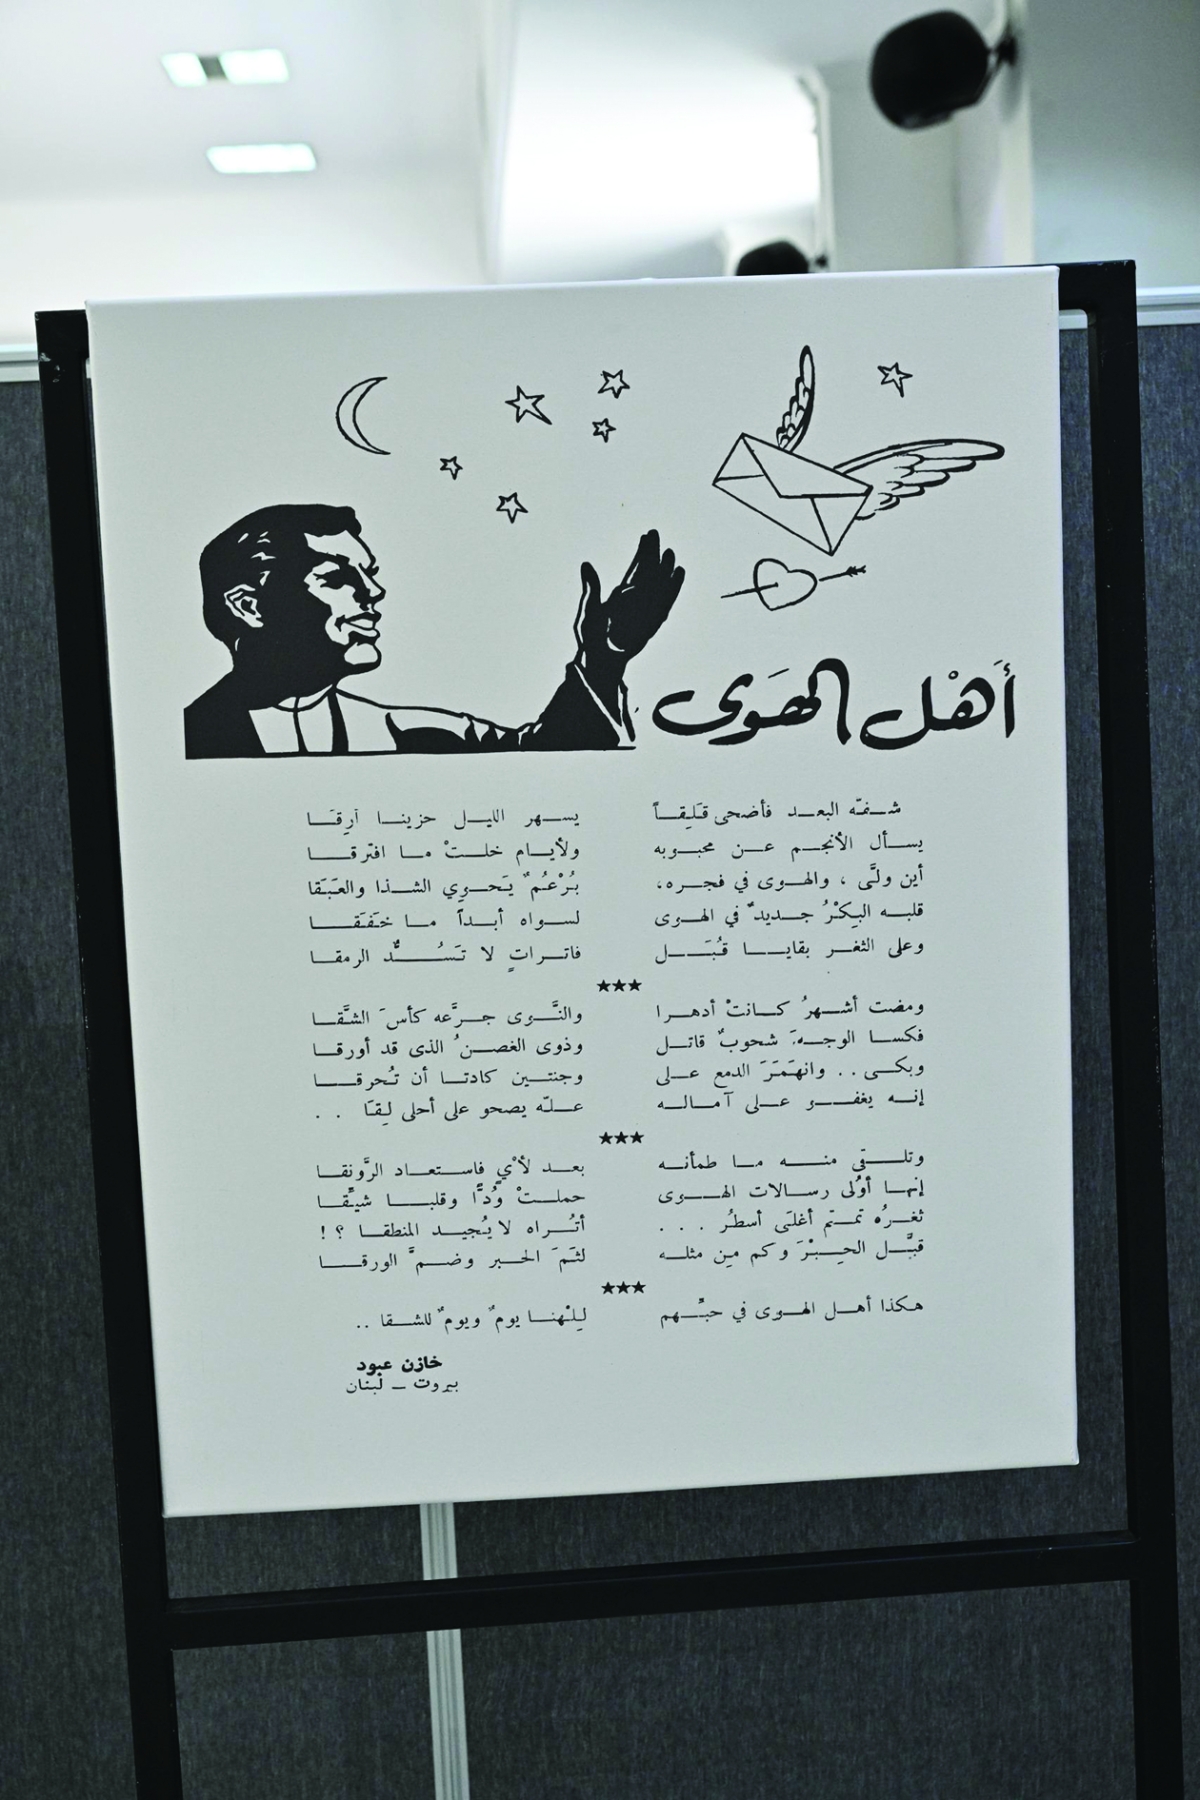 أَهْل الهَوى
شفّه البعد فأضحى قَلِقاً يسهر الليل حزينا أرِقَا
يسأل الأنجم عن محبوبه ولأيام خلتْ ما افترقا
أين ولَّى ، والهوى في فجره، بُرْعُمٌ يَحوي الشذا والعَبَقا
قلبه البِكْرُ جديدٌ في الهوى لسواه أبداً ما خَفَقا
وعلى الثغر بقايا قُبَل فاتراتٍ لا تَسُدُّ الرمقا
★★★
ومضت أشهرُ كانتْ أدهرا والنَّوى جرَّعه كأسَ الشَّقا
فكسا الوجهَ شحوبٌ قاتل وذوى الغصنُ الذى قد أورقا
وبكى .. وانهَمَرَ الدمع على وجنتين كادتا أن تُحرقا
إنه يغفو على آماله علّه يصحو على أحلى لِقَا . .
★★★
وتلقى منه ما طمأنه بعد لأْيٍ فاستعاد الرَّونقا
إنها أوُلى رسالات الهوى حملتْ وُدًّا وقلبا شيِّقا
ثغرُه تمتم أغلَى أسطُر . . . أتُراه لا يُجيد المنطقا ؟ !
قبَّل الحِبْرَ وكم مِن مثله لثَمَ الحبر وضمَّ الورقا
★★★
هكذا أهل الهوى في حبِّهم لِلْهنا يومٌ ويومٌ للشقا ..
خازن عبود
بيروت ــ لبنان